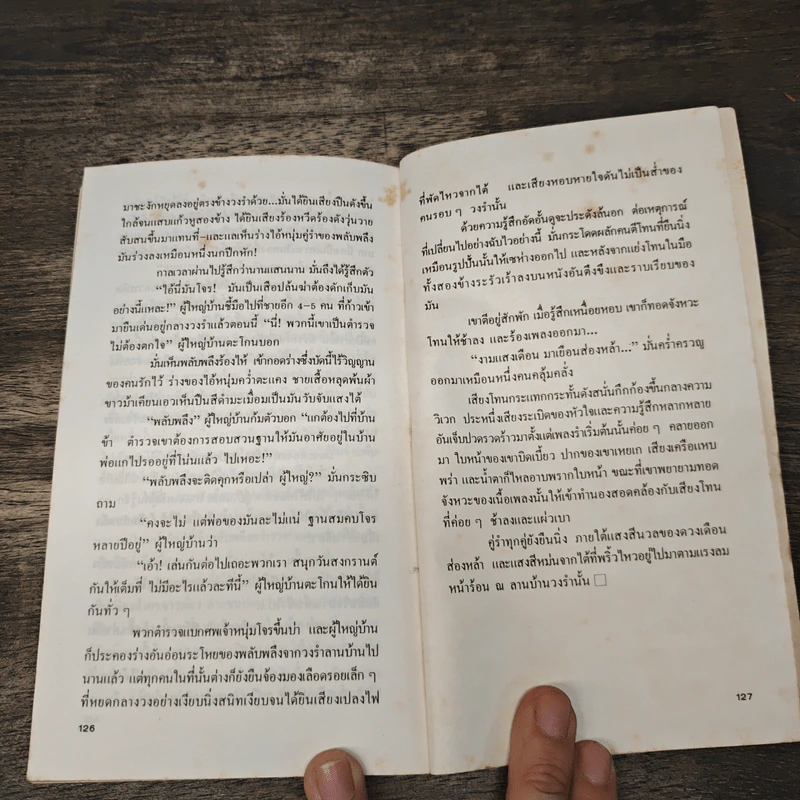 มาชะงักหยุดลงอยู่ตรงข้างวงรำด้วย...มั่นได้ยินเสียงปืนดังขึ้น
ใกล้จนแสบแก้วหูสองข้าง ได้ยินเสียงร้องหวีดร้องดังวุ่นวาย
สับสนขึ้นมาแทนที่–และแลเห็นร่างไอ้หนุ่มคู่รำของพลับพลึง
มันร่วงลงเหมือนหนึ่งนกปีกหัก!
กาลเวลาผ่านไปรู้สึกว่านานแสนนาน มั่นถึงได้รู้สึกตัว
“ไอ้นี่มันโจร! มันเป็นเสือปล้นฆ่าต้องดักเก็บมัน
อย่างนี้แหละ!” ผู้ใหญ่บ้านชี้มือไปที่ชายอีก 4-5 คน ที่ก้าวเข้า
มายืนเด่นอยู่กลางวงรำแล้วตอนนี้ “นี่! พวกนี้เขาเป็นตำรวจ
ไม่ต้องตกใจ” ผู้ใหญ่บ้านตะโกนบอก
มั่นเห็นพลับพลึงร้องไห้ เข้ากอดร่างซึ่งบัดนี้ไร้วิญญาน
ของคนรักไว้ ร่างของไอ้หนุ่มคว่ำตะแคง ชายเสื้อหลุดพ้นผ้า
ขาวม้าเคียนเอวเห็นปืนสีดำมะเมื่อมเป็นมันวับจับแสงไต้
“พลับพลึง” ผู้ใหญ่บ้านก้มตัวบอก “แกต้องไปที่บ้าน
ข้า ตำรวจเขาต้องการสอบสวนฐานให้มันอาศัยอยู่ในบ้าน
พ่อแกไปรออยู่ที่โน่นแล้ว ไปเหอะ!”
“พลับพลึงจะติดคุกหรือเปล่า ผู้ใหญ่?” มั่นกระซิบ
ถาม
“คงจะไม่ แต่พ่อของมันละไม่แน่ ฐานสมคบโจร
หลายปีอยู่” ผู้ใหญ่บ้านว่า
“เอ้า! เล่นกันต่อไปเถอะพวกเรา สนุกวันสงกรานต์
กันให้เต็มที่ ไม่มีอะไรแล้วละทีนี้” ผู้ใหญ่บ้านตะโกนให้ได้ยิน
กันทั่ว ๆ
พวกตำรวจแบกศพเจ้าหนุ่มโจรขึ้นบ่า และผู้ใหญ่บ้าน
ก็ประคองร่างอันอ่อนระโหยของพลับพลึงจากวงรำลานบ้านไป
นานแล้ว แต่ทุกคนในที่นั้นต่างก็ยังยืนจ้องมองเลือดรอยเล็ก ๆ
ที่หยดกลางวงอย่างเงียบนิ่งสนิทเงียบจนได้ยินเสียงเปลงไฟ
126
ที่พัดไหวจากไต้ และเสียงหอบหายใจดันไม่เป็นส่ำของ
คนรอบ ๆ วงรำนั้น
ด้วยความรู้สึกอัดอั้นดูจะประดังล้นอก ต่อเหตุการณ์
ที่เปลี่ยนไปอย่างฉับไวอย่างนี้ มั่นกระโดดผลักคนตีโทนที่ยืนนิ่ง
เหมือนรูปปั้นนั้นให้เซห่างออกไป และหลังจากแย่งโทนในมือ
ทั้งสองข้างระรัวเร้าลงบนหนังอันตึงขึงและราบเรียบของ
มัน
เขาตีอยู่สักพัก เมื่อรู้สึกเหนื่อยหอบ เขาก็ทอดจังหวะ
โทนให้ช้าลง และร้องเพลงออกมา...
“งามแสงเดือน มาเยือนส่องหล้า...” มั่นคร่ำครวญ
ออกมาเหมือนหนึ่งคนคลุ้มคลั่ง
เสียงโทนกระแทกกระทั้นดังสนั่นกึกก้องขึ้นกลางความ
วิเวก ประหนึ่งเสียงระเบิดของหัวใจและความรู้สึกหลากหลาย
อันเจ็บปวดรวดร้าวมาตั้งแต่เพลงรำเริ่มต้นนั้นค่อย ๆ คลายออก
มา ใบหน้าของเขาบิดเบี้ยว ปากของเขาเหยเก เสียงเครือแหบ
พร่า และน้ำตาก็ไหลอาบพรากใบหน้า ขณะที่เขาพยายามทอด
จังหวะของเนื้อเพลงนั้นให้เข้าทำนองสอดคล้องกับเสียงโทน
ที่ค่อย ๆ ช้าลงและแผ่วเบา
คู่รำทุกคู่ยังยืนนิ่ง ภายใต้แสงสีนวลของดวงเดือน
ส่องหล้า และแสงสีหม่นจากไต้ที่พริ้วไหวอยู่ไปมาตามแรงลม
หน้าร้อน ณ ลานบ้านวงรำนั้น □
127